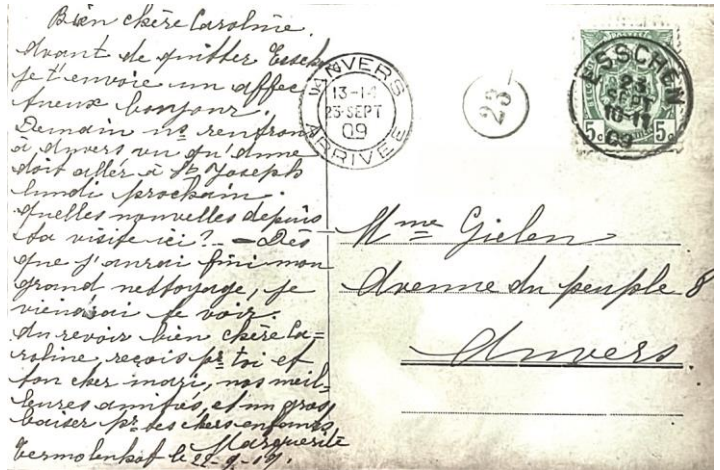 Bien chère Caroline,
Avant de quitter Esschen
je t'envoie un affec-
tueux bonjour.
Demain ns rentrons
à Anvers vu qu'Anne
doit aller à St Joseph
lundi prochain.
Quelles nouvelles depuis
ta visite ici? — Dès
que j'aurai fini mon
grand nettoyage, je
viendrai te voir.
Au revoir bien chère Ca=
roline, reçois pr toi et
ton cher mari, nos meil-
leures amitiés, et un gros
baiser pr tes chers enfants
Marguerite
le 22-9-
ANVERS
13-14
23 SEPT
09
ARRIVÉE
23
ESSCHEN
23
SEPT
10-11
09
5c 5c
Mme Gielen
Avenue du peuple 8
Anvers.